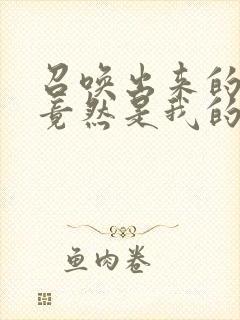 召唤出来的
竟然是我的
鱼肉卷